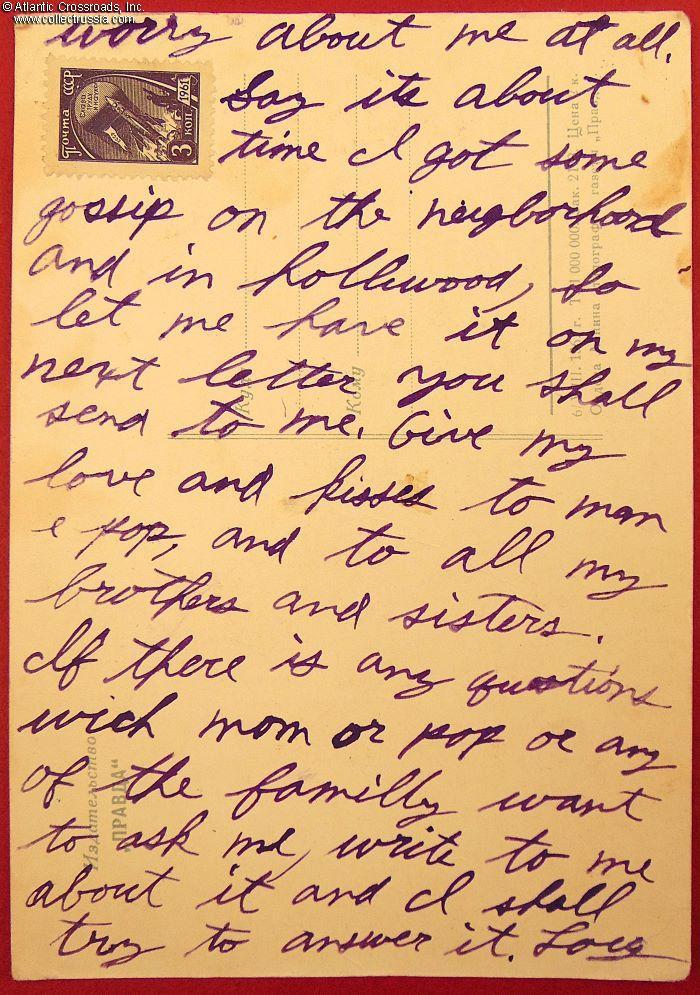 © Atlantic Crossroads, Inc.
www.collectrussia.com
worry about me at all.
Почта СССР
1961
3 коп.
Say its about
time I got some
gossip on the neigborhood
and in holliwood, so
let me have it on my
next letter you shall
send to me. Give my
love and kisses to mam
e pop, and to all my
brothers and sisters.
If there is any questions
wich mom or pop or any
of the familly want
to ask me, write to me
about it and I shall
try to answer it. Love
Куда
Кому
Издательство
"ПРАВДА"
Цена